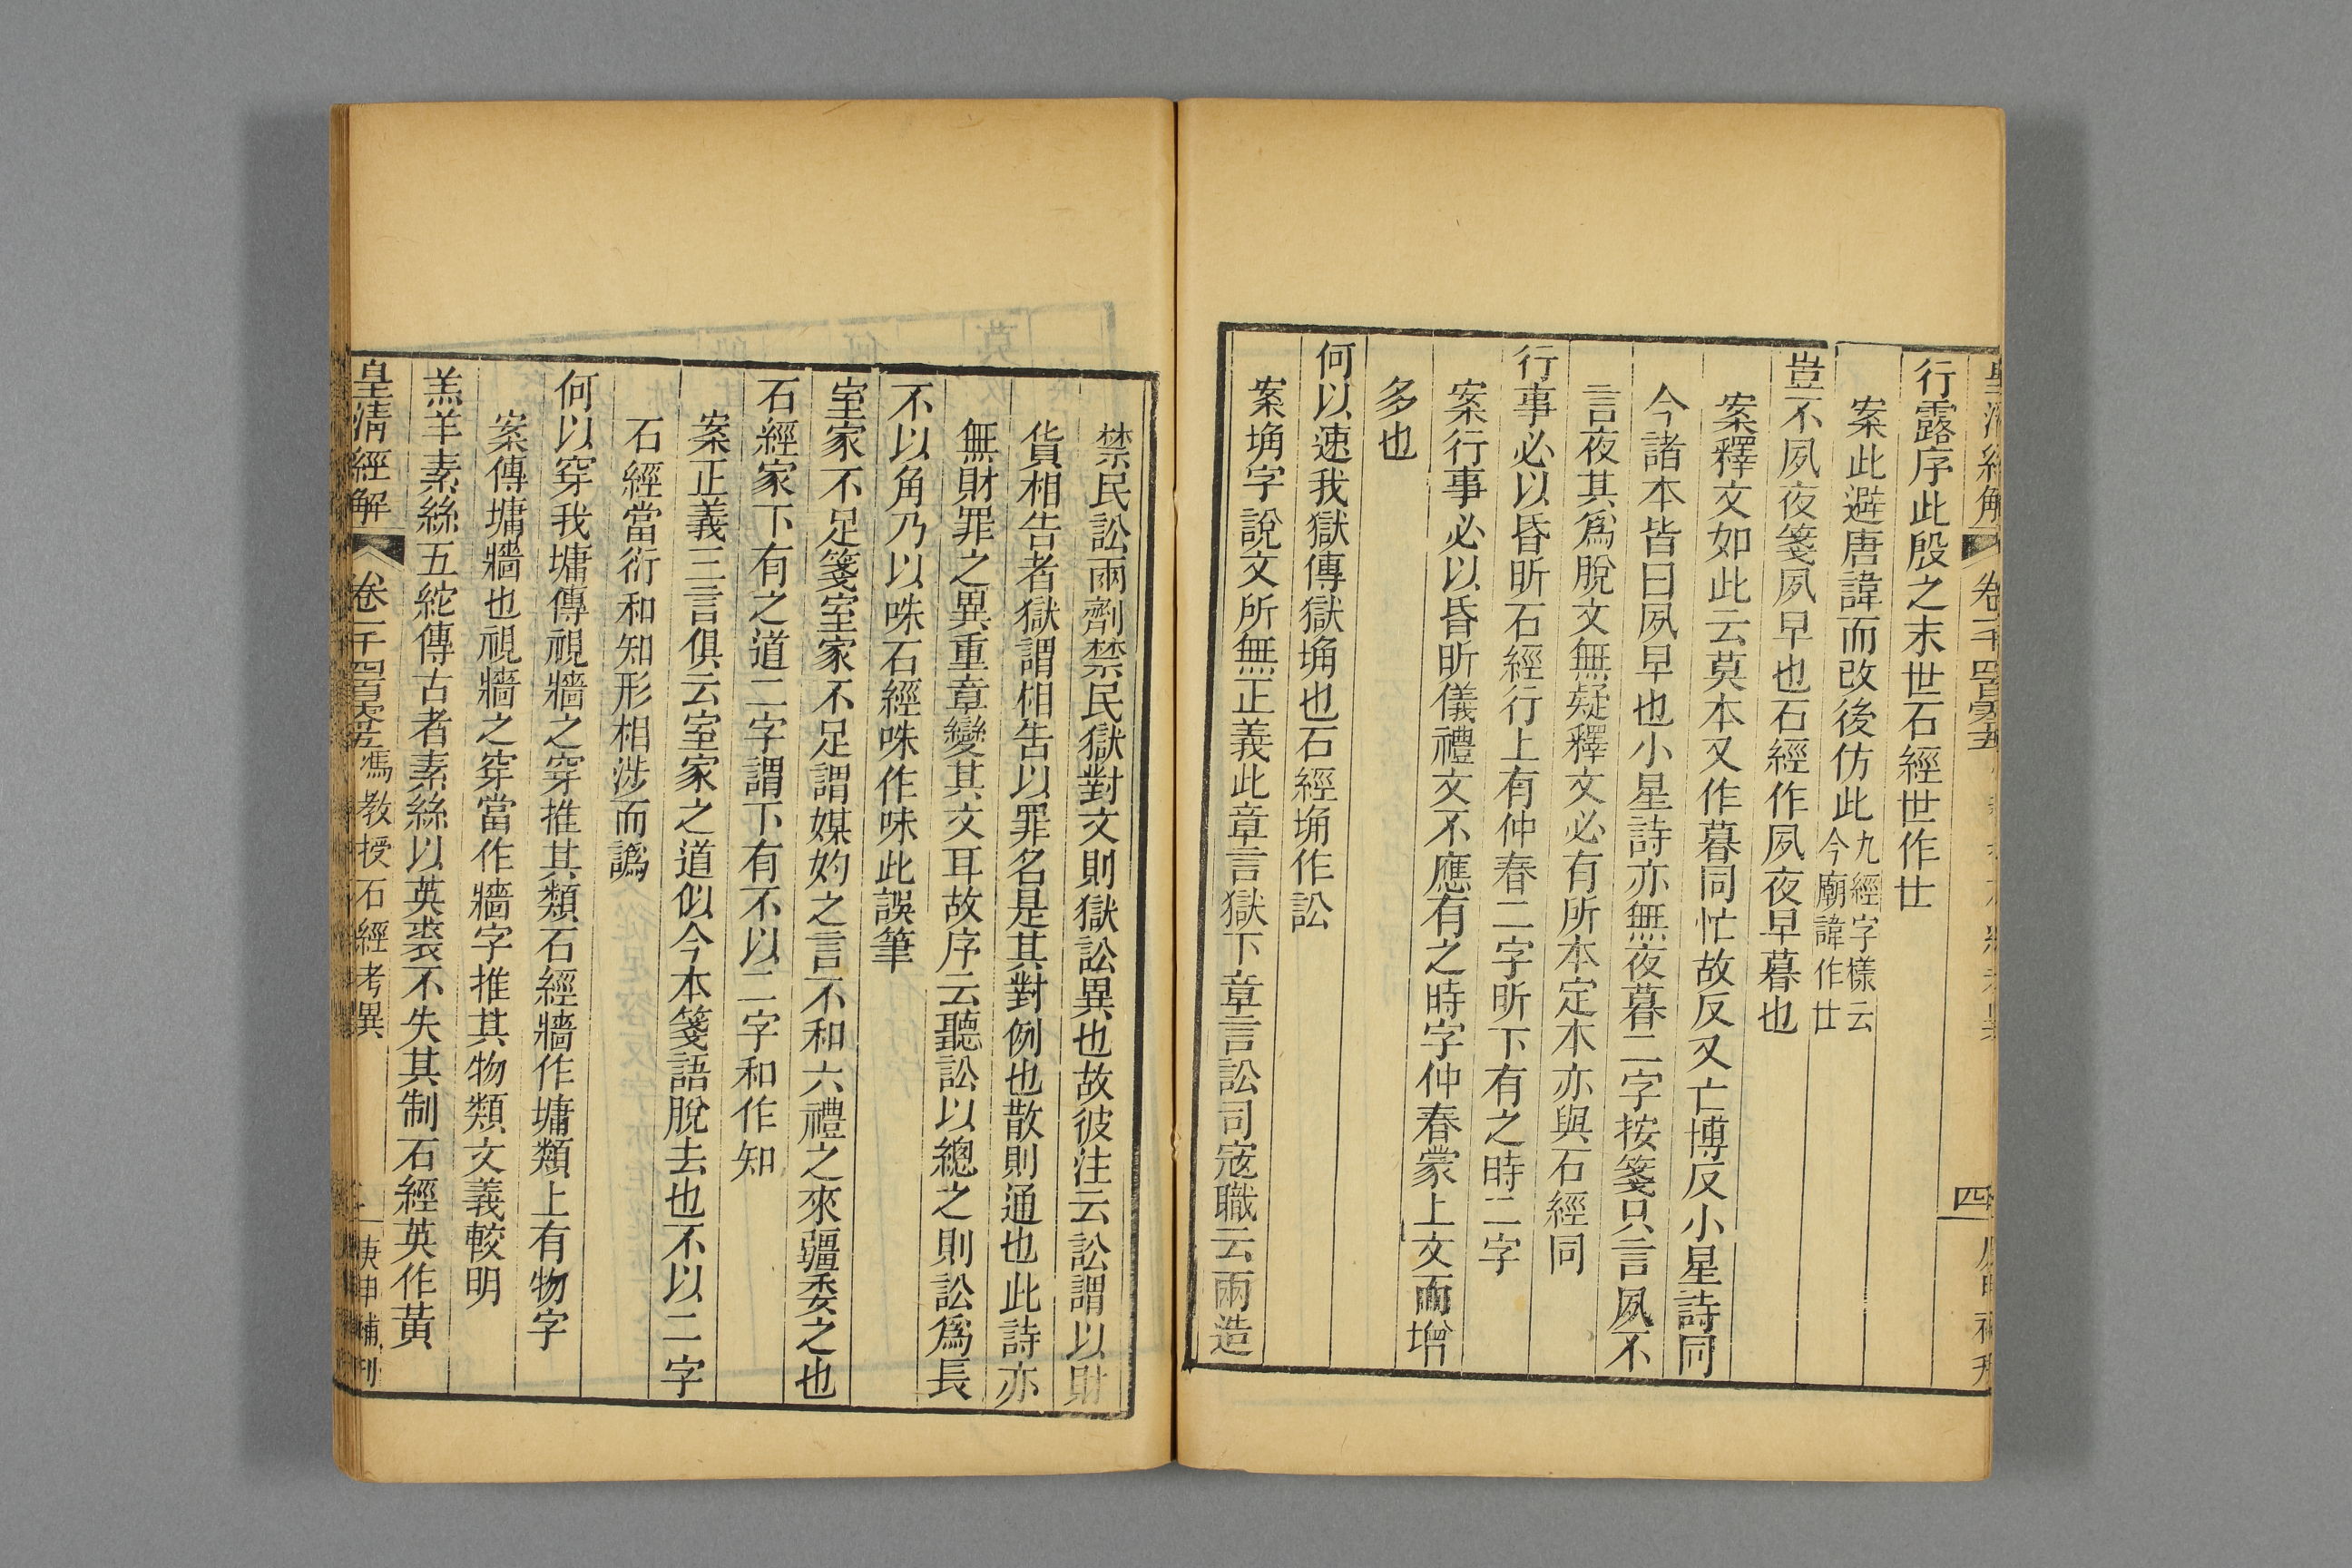 行露序此殷之末世石經世作廿
案此避唐諱而改後仿此九經字樣云今廟諱作廿
豈不夙夜箋夙早也石經作夙夜早暮也
案釋文如此云莫本又作暮同忙故反又亡博反小星詩同
今諸本皆曰夙早也小星詩亦無夜暮二字按箋只言夙不
言夜其爲脫文無疑釋文必有所本定本亦與石經同
行事必以昏昕石經行上有仲春二字昕下有之時二字
案行事必以昏昕儀禮文不應有之時字仲春蒙上文而增
多也
何以速我獄傳獄埆也石經埆作訟
案埆字說文所無正義此章言獄下章言訟司寇職云兩造
禁民訟兩劑禁民獄對文則獄訟異也故彼注云訟謂以財
貨相告者獄謂相告以罪名是其對例也散則通也此詩亦
無財罪之異重章變其文耳故序云聽訟以總之則訟爲長
不以角乃以咮石經咮作味此誤筆
室家不足箋室家不足謂媒妁之言不和六禮之來疆委之也
石經家下有之道二字謂下有不以二字和作知
案正義三言俱云室家之道似今本箋語脫去也不以二字
石經當衍和知形相涉而譌
何以穿我墉傳視牆之穿推其類石經牆作墉類上有物字
案傳墉牆也視牆之穿當作牆字推其物類文義較明
羔羊素絲五紽傳古者素絲以英裘不失其制石經英作黃
皇清經解 卷一千四百零五 馮教授石經考異 庚申補刊